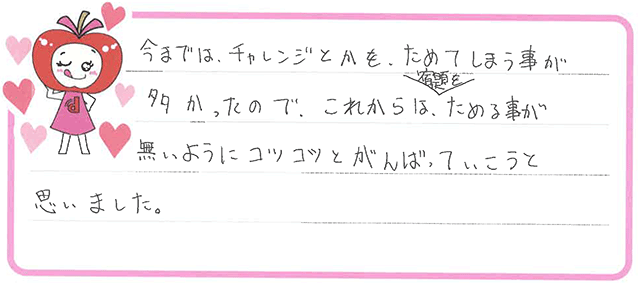 今までは、チャレンジとかを、ためてしまう事が
宿題を
多かったので、これからは、ためる事が
無いようにコツコツとがんばっていこうと
思いました。